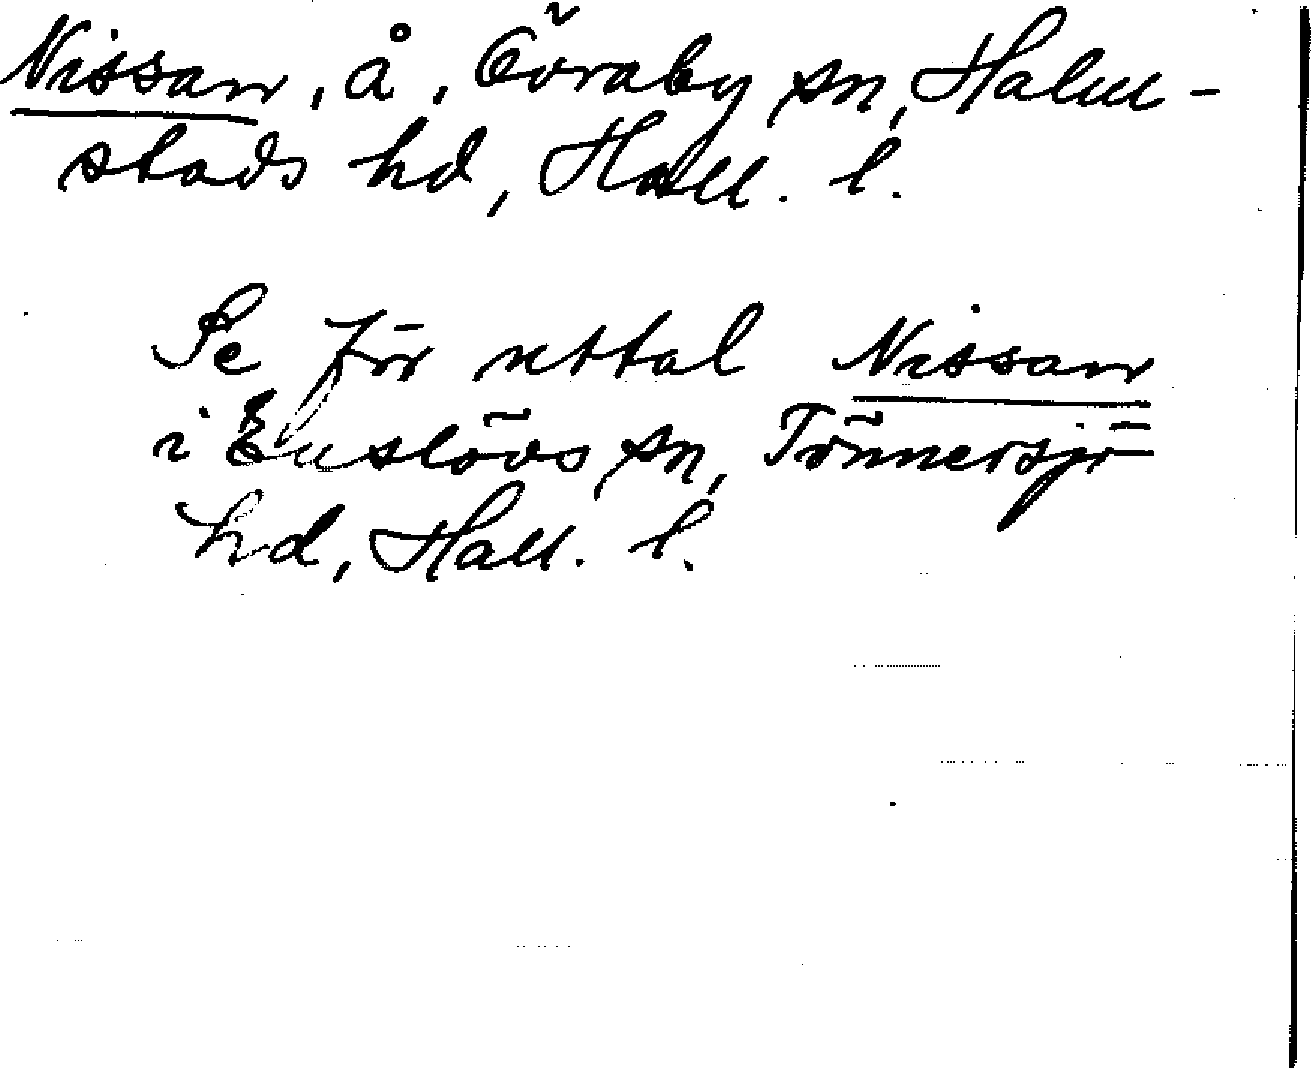 Nissan, å, Övraby sn, Halm-
stads hd, Hall. l.
Se för uttal Nissan
i Enslövs sn, Tönnersjö
hd, Hall. l.